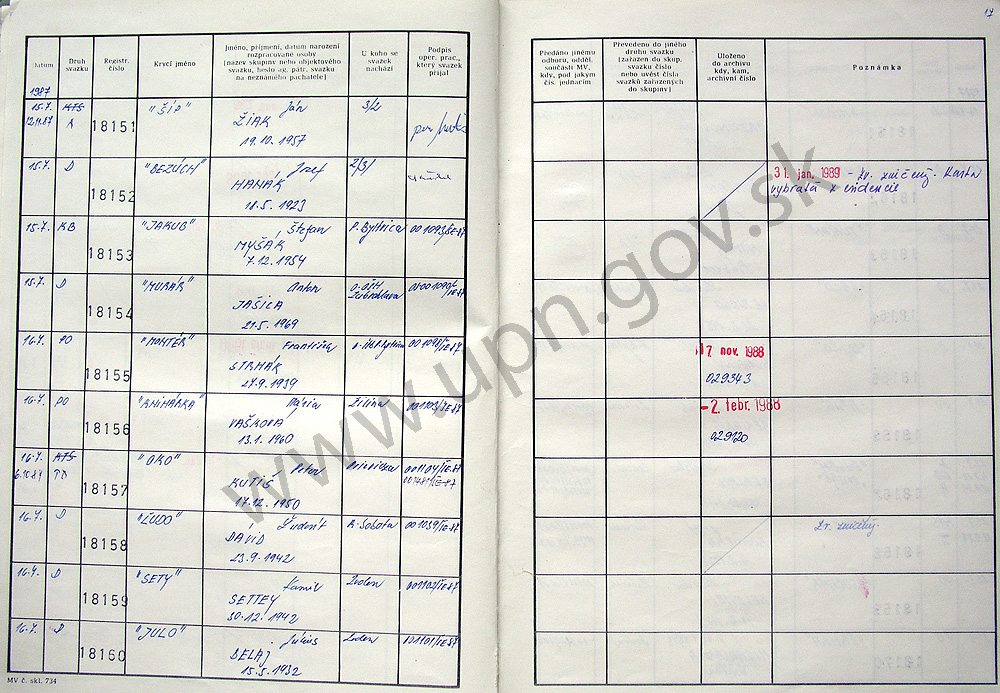 17
Datum
Druh svazku
Registr. číslo
Krycí jméno
Jméno, příjmení, datum narození
rozpracované osoby
[název skupiny nebo objektového
svazku, heslo ag. pátr. svazku
na neznámého pachatele]
U koho se
svazek
nachází
Podpis
oper. prac.,
který svazek
přijal
Předáno jinému
odboru, odděl.
součásti MV,
kdy, pod jakým
čís. jednacím
Převedeno do jiného
druhu svazku
[zařazen do skup.
svazku číslo
nebo uvést čísla
svazků zařazených
do skupiny]
Uloženo
do archivu
kdy, kam,
archivní číslo
Poznámka
1987
15.7. KTS 18151 "ŠÍP" Ján
12.11.87 A ŽIAK
19.10.1957
15.7. D 18152 "BEZÚCH" Jozef 2/3/
HANÁK
18.5.1923
31. jan. 1989 - Zv. zničený. Karta
vybratá z evidencie
15.7. KB 18153 "JAKUB" Štefan P. Bystrica 001093/IE-87
MYŠÁK
7.12.1954
15.7. D 18154 "MURÁR" Anton
JAŠICA
21.5.1969
16.7. PO 18155 "MONTÉR" František 001098/IE-87
STRHÁK
27.9.1939
17 nov. 1988
029343
16.7. PO 18156 Mária Žilina 001103/IE-87
VAŠKOVÁ
13.1.1960
-2. febr. 1988
029120
16.7. KTS 18157 "OKO" Peter Prievidza 001104/IE-87
TD KUTIŠ 001481/IE-87
17.12.1950
16.7. D 18158 "ĽUDO" Ľudovít R. Sobota 001059/IE-87
DÁVID
23.9.1942
Zv. zničený.
16.7. D 18159 "SETY" Kamil Leden 001102/IE-87
SETTEY
30.12.1942
16.7. D 18160 "JULO" Július Leden 001101/IE-87
BELAJ
15.5.1932
MV č. skl. 734
www.upn.gov.sk